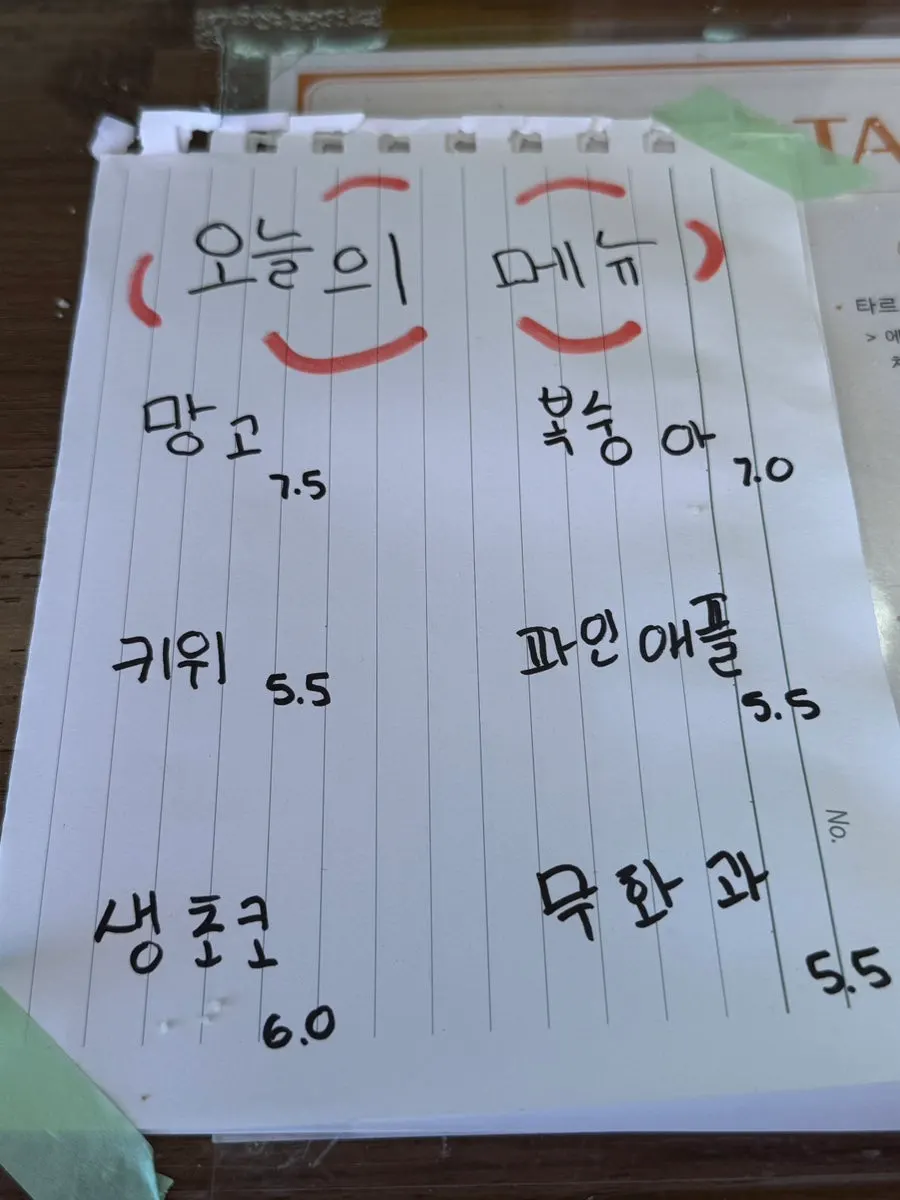 오늘의 메뉴
망고 7.5
복숭아 7.0
키위 5.5
파인애플 5.5
생초코 6.0
무화과 5.5
No.
TA
타르
>